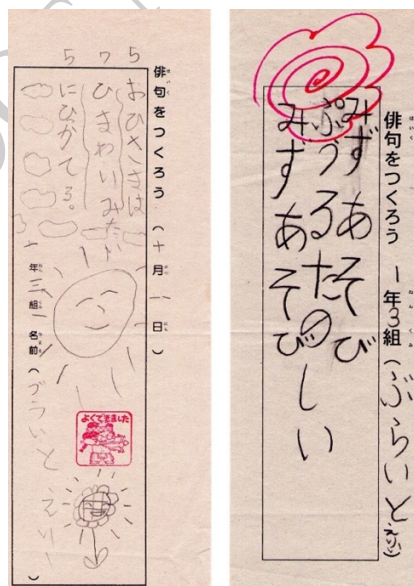 5 7 5
俳句をつくろう(十月 日)
おひさまは
ひまわりみたい
にひがてる。
年三組 名前(ぶらいと えりー)
よくできました
俳句をつくろう 1年3組(ぶらいと
みずあそび
ぷうるたのしい
みずあそび